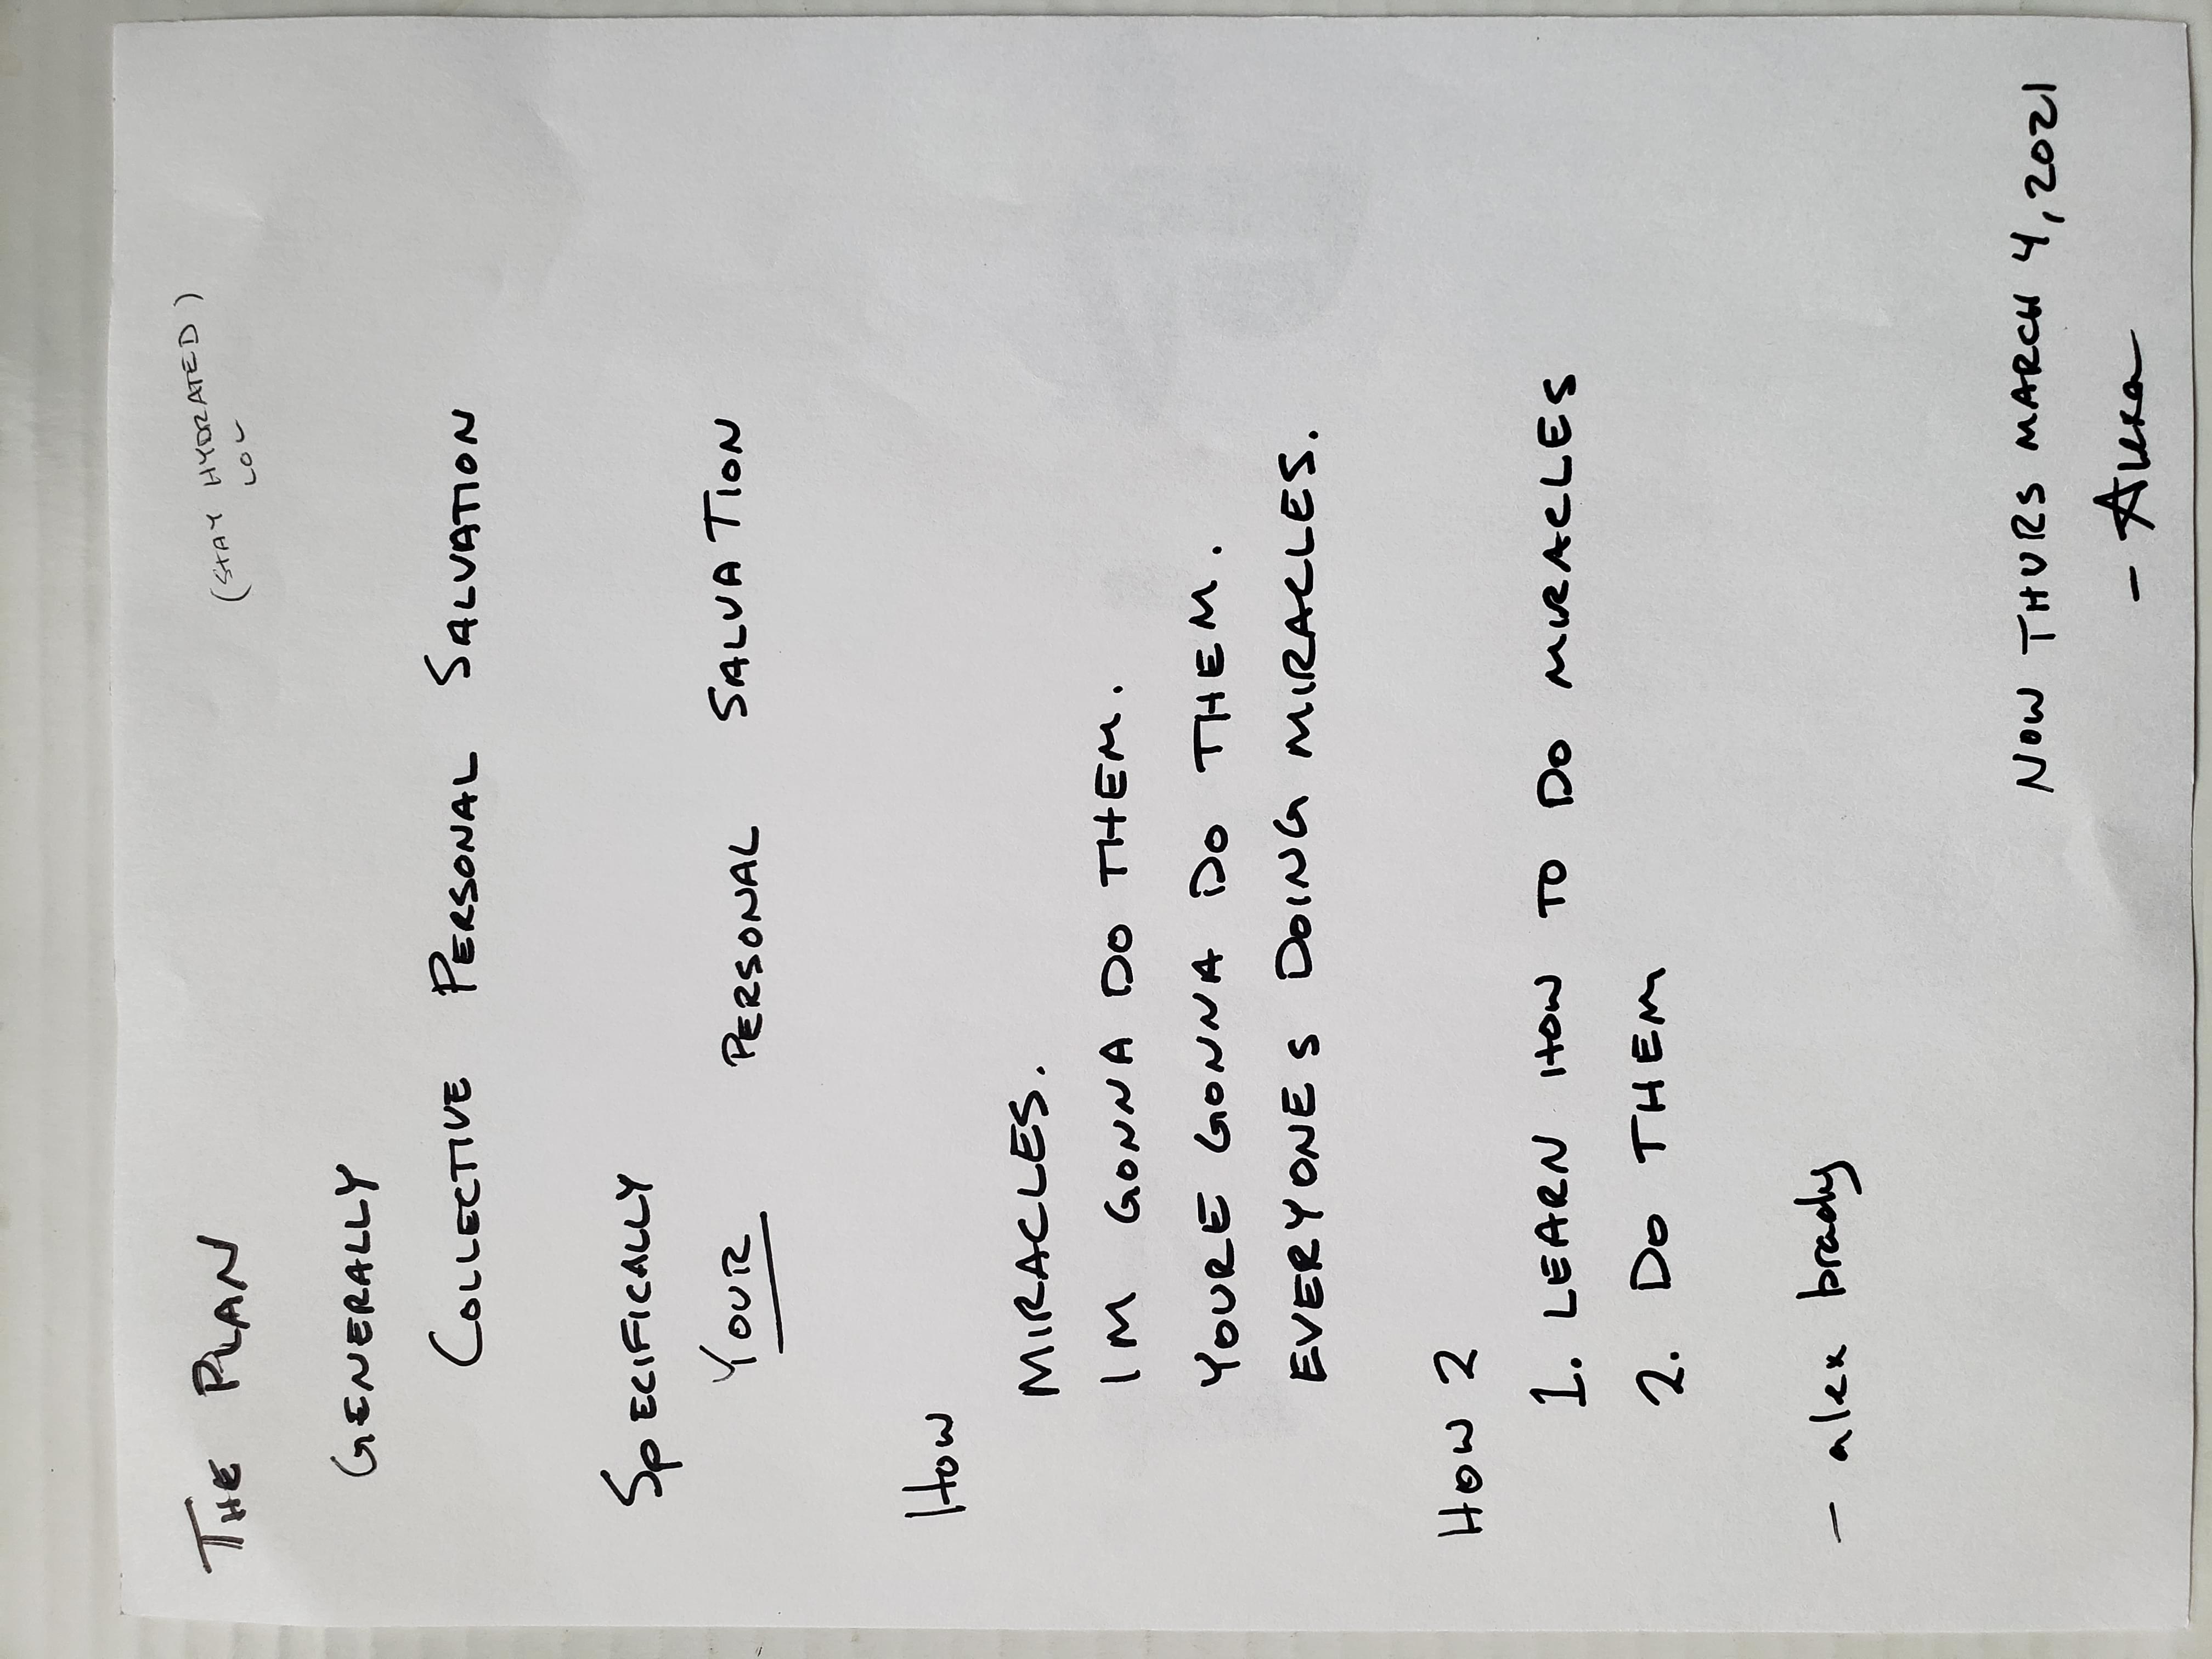 THE PLAN
(STAY HYDRATED)
LOL
GENERALLY
COLLECTIVE PERSONAL SALVATION
SPECIFICALLY
YOUR PERSONAL SALVATION
HOW
MIRACLES.
IM GONNA DO THEM.
YOURE GONNA DO THEM.
EVERYONES DOING MIRACLES.
HOW 2
1. LEARN HOW TO DO MIRACLES
2. DO THEM
- alex brady
NOW THURS MARCH 4, 2021
- Alexa